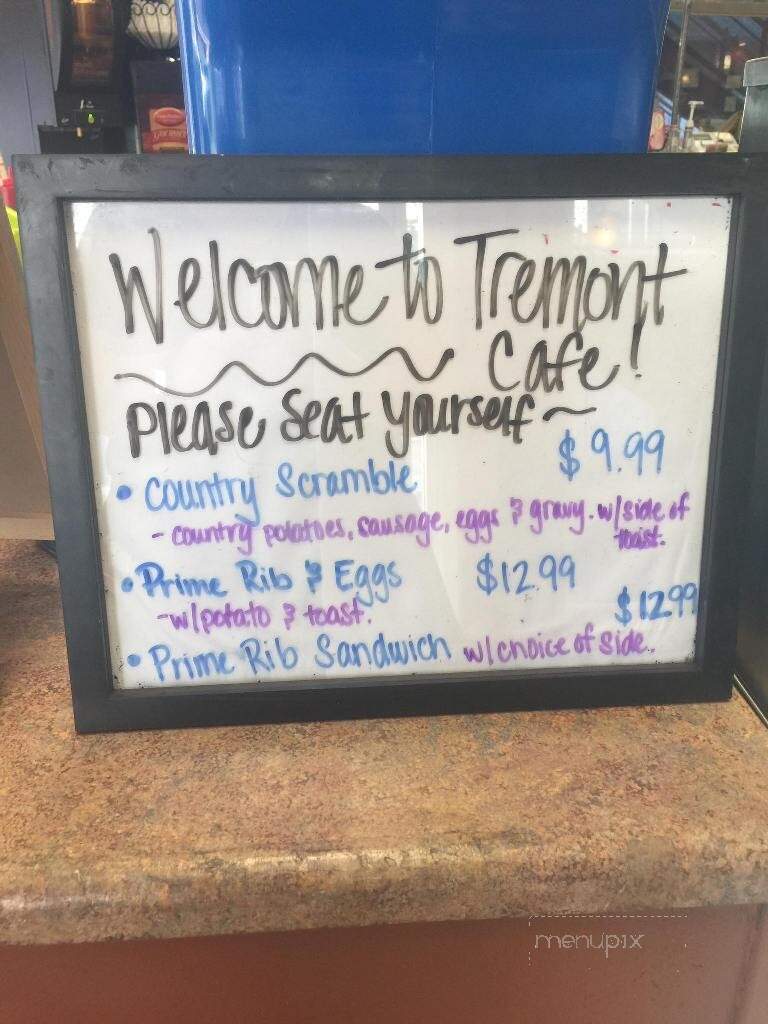 Welcome to Tremont
Cafe!
Please Seat Yourself ~
• Country Scramble $9.99
- country potatoes, sausage, eggs & gravy. w/side of
toast.
• Prime Rib & Eggs $12.99
-w/potato & toast.
$12.99
• Prime Rib Sandwich w/choice of side.
menupix